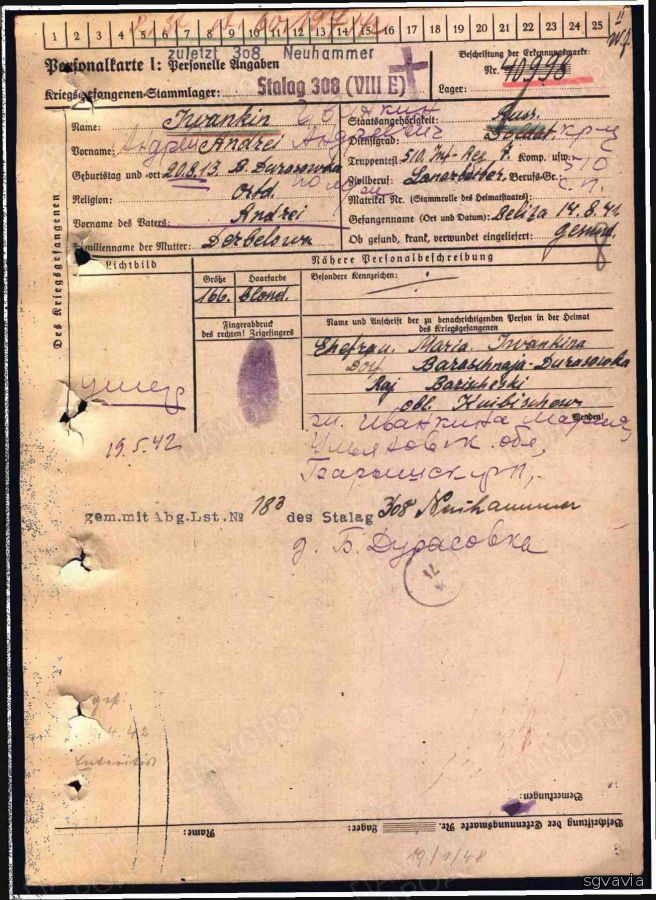 1 2 3 4 5 6 7 8 9 10 11 12 13 14 15 16 17 18 19 20 21 22 23 24 25
zuletzt 308 Neuhammer
Personalkarte I: Personelle Angaben
Beschriftung der Erkennungsmarke:
Kriegsgefangenen-Stammlager: Stalag 308 (VIII E)
Nr. 40998
Lager:
Des Kriegsgefangenen
Name: Iwankin
Staatsangehörigkeit: Russ.
Vorname: Andrei Андреевич
Dienstgrad: Soldat кр-ц
Geburtstag und -ort: 20.8.13. B. Durasowka
Truppenteil: 510 Inf-Reg. Komp. usw.: 510
Religion: Ortd.
Zivilberuf: Berufs-Gr.: с.п.
Vorname des Vaters: Andrei
Matrikel Nr. (Stammrolle des Heimatstaates):
Gefangennahme (Ort und Datum): Beliza 14.8.41
Familienname der Mutter: Derbelowa
Ob gesund, krank, verwundet eingeliefert: gesund
Lichtbild
Nähere Personalbeschreibung
Größe Haarfarbe Besondere Kennzeichen:
166. Blond.
Fingerabdruck
des rechten! Zeigefingers
Name und Anschrift der zu benachrichtigenden Person in der Heimat
des Kriegsgefangenen
Ehefrau. Maria Iwankina
Dorf Baraschnaja-Durasowka
Raj Barischski
obl. Kuibischew
Wenden!
умер
19.5.42
Иванкина Мария,
Ульяновск. обл,
Барышск р-н,
gem.mit Abg.Lst.№ 183 des Stalag 308 Neuhammer
д. Б. Дурасовка
gest.
4.42
Bemerkungen:
Beschriftung der Erkennungsmarke Nr.
Lager:
Name:
19/1/48
ЦАМО.РФ
sgvavia